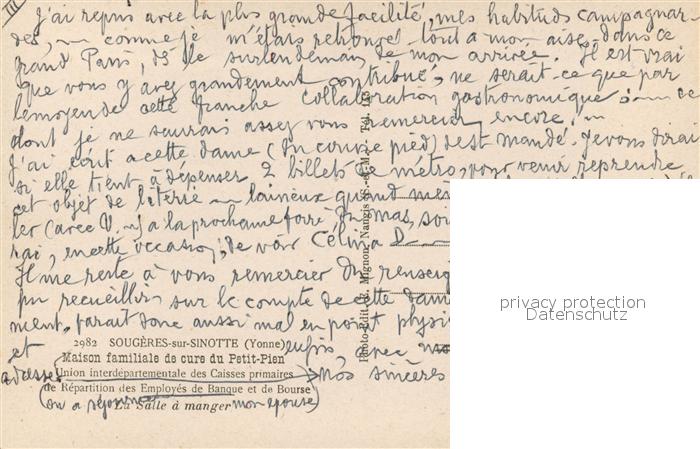 III
J'ai repris avec la plus grande facilité, mes habituds campagnar-
des, — comme je m'étais retrouvé tout a mon aise dans ce
grand Paris, dès le surlendemain de mon arrivée. Il est vrai
que vous y avez grandement contribué, ne serait-ce que par
le moyen de cette franche collaboration gastronomique
dont je ne saurais assez vous remercier encore.
J'ai écrit a cette dame (du couvre pied) demandé. Je vous dirai
si elle tient à dépenser 2 billets de métro, pour venir reprendre
cet objet de literie — laineux quand
ler (avec V.) a la prochaine
rai, en cette occasion, de voir Célina D
Il me reste à vous remercier du
pu recueillir sur le compte de cette
ment, parait donc aussi mal en point
et enfin, avec
2982 SOUGÈRES-sur-SINOTTE (Yonne)
Maison familiale de cure du Petit-Pien
adresser nos sincères
Union interdépartementale des Caisses primaires
de Répartition des Employés de Banque et de Bourse
La Salle à manger
(ou a séjourné mon épouse)
Photo-Edit. R. Mignon, Nangis (S.-et-M.) - Tél. 143
privacy protection
Datenschutz